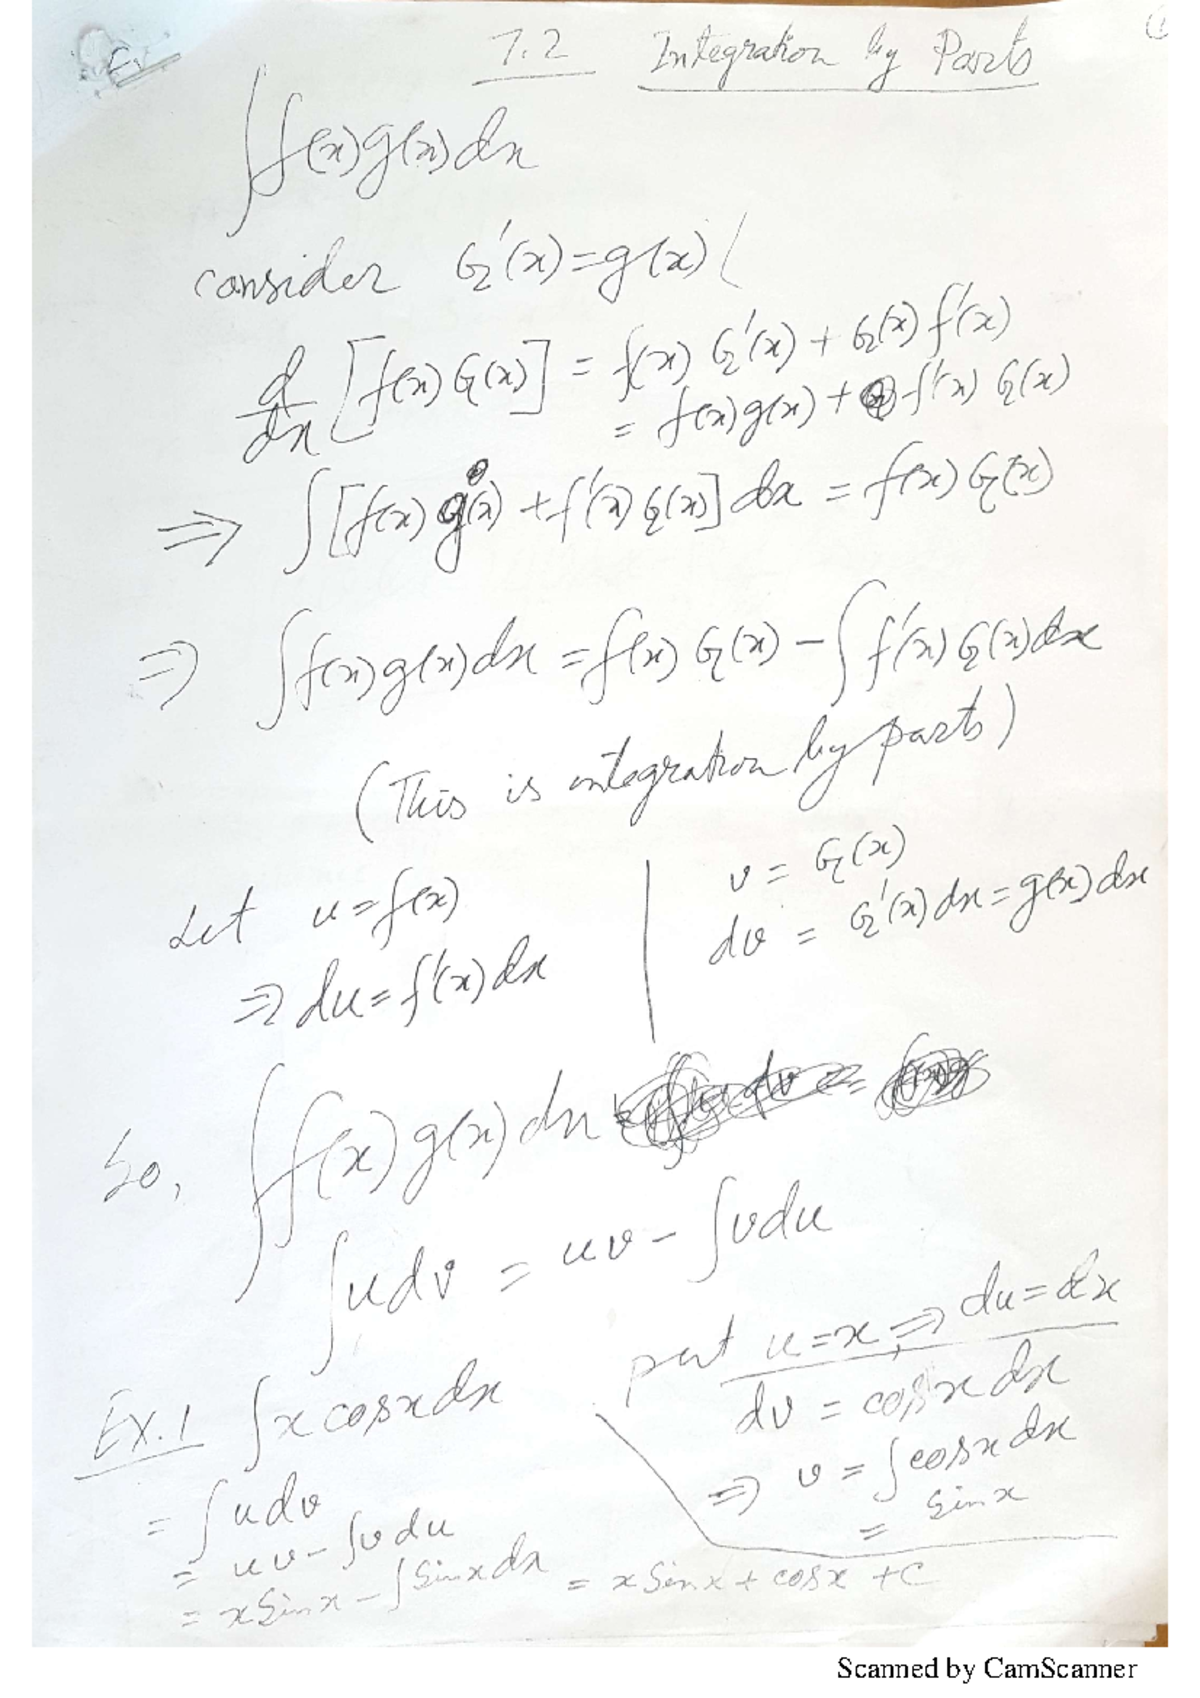 7.2 Integration by Parts
∫f(x)g(x)dx
consider G'(x)=g(x)
d/dx [f(x)G(x)] = f(x) G'(x) + G(x) f'(x)
= f(x)g(x) + f'(x) G(x)
⇒ ∫[f(x) g(x) + f'(x) G(x)] dx = f(x) G(x)
⇒ ∫f(x)g(x)dx = f(x) G(x) − ∫f'(x) G(x)dx
(This is integration by parts)
Let u=f(x)
⇒ du=f'(x)dx
v = G(x)
dv = G'(x)dx=g(x)dx
So, ∫f(x)g(x)dx
∫udv = uv − ∫vdu
Ex.1 ∫x cosx dx
put u=x, ⇒ du=dx
dv = cosx dx
⇒ v = ∫cosx dx
= sinx
= ∫udv
= uv − ∫vdu
= x sinx − ∫sinx dx = x sinx + cosx + C
Scanned by CamScanner